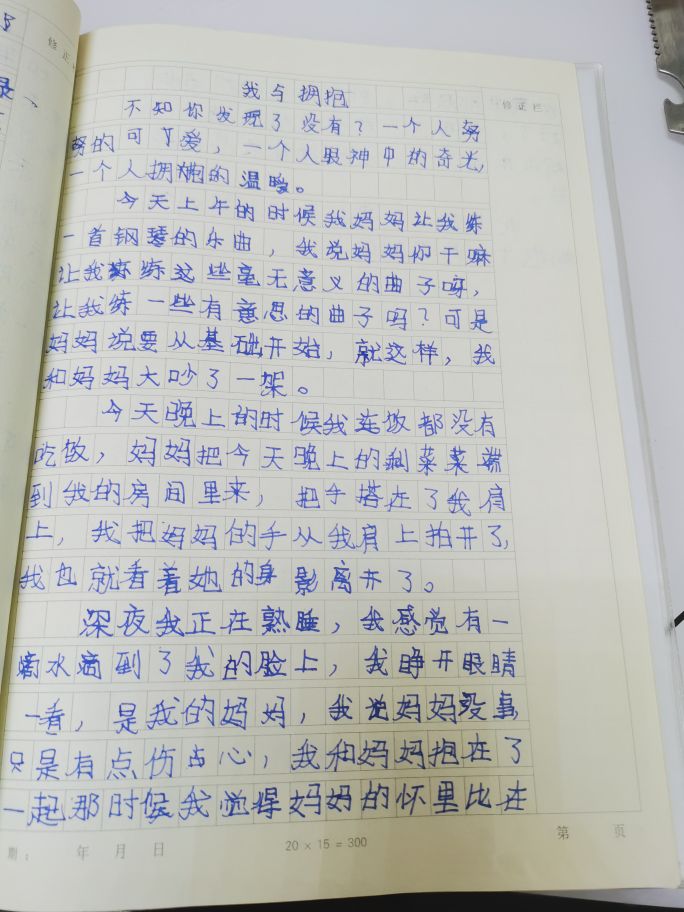 修正栏
我与拥抱
不知你发现了没有？一个人努
努的可可爱，一个人眼神中的奇光，
一个人拥抱的温暖。
今天上午的时候我妈妈让我练
一首钢琴的乐曲，我说妈妈你干嘛
让我练练这些毫无意义的曲子呀，
让我练一些有意思的曲子吗？可是
妈妈说要从基础开始，就这样，我
和妈妈大吵了一架。
今天晚上的时候我连饭都没有
吃做，妈妈把今天晚上的剩菜菜端
到我的房间里来，把手搭在了我肩
上，我把妈妈的手从我肩上拍开了，
我也就看着她的身影离开了。
深夜我正在熟睡，我感觉有一
滴水滴到了我的脸上，我睁开眼睛
一看，是我的妈妈，我说妈妈没事
只是有点伤点心，我和妈妈抱在了
一起那时候我觉得妈妈的怀里比在
期： 年 月 日
20 × 15 = 300
第 页